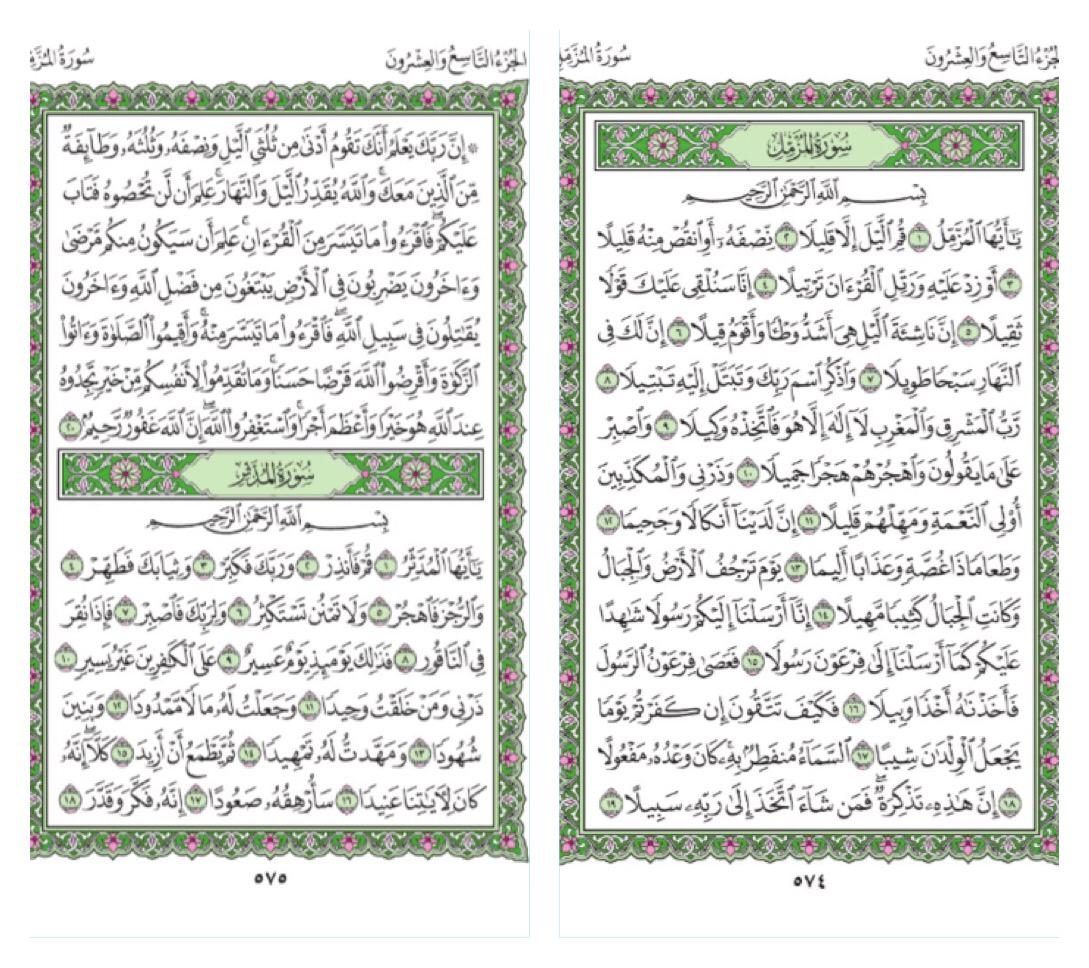 الجُزْءُ التَّاسِعُ وَالعِشْرُونَ سُورَةُ المُزَّمِّل
سُورَةُ المُزَّمِّلِ
بِسْمِ ٱللَّهِ ٱلرَّحْمَٰنِ ٱلرَّحِيمِ
يَٰٓأَيُّهَا ٱلْمُزَّمِّلُ ١ قُمِ ٱلَّيْلَ إِلَّا قَلِيلًا ٢ نِّصْفَهُۥٓ أَوِ ٱنقُصْ مِنْهُ قَلِيلًا
٣ أَوْ زِدْ عَلَيْهِ وَرَتِّلِ ٱلْقُرْءَانَ تَرْتِيلًا ٤ إِنَّا سَنُلْقِى عَلَيْكَ قَوْلًا
ثَقِيلًا ٥ إِنَّ نَاشِئَةَ ٱلَّيْلِ هِىَ أَشَدُّ وَطْـًٔا وَأَقْوَمُ قِيلًا ٦ إِنَّ لَكَ فِى
ٱلنَّهَارِ سَبْحًا طَوِيلًا ٧ وَٱذْكُرِ ٱسْمَ رَبِّكَ وَتَبَتَّلْ إِلَيْهِ تَبْتِيلًا ٨
رَّبُّ ٱلْمَشْرِقِ وَٱلْمَغْرِبِ لَآ إِلَٰهَ إِلَّا هُوَ فَٱتَّخِذْهُ وَكِيلًا ٩ وَٱصْبِرْ
عَلَىٰ مَا يَقُولُونَ وَٱهْجُرْهُمْ هَجْرًا جَمِيلًا ١٠ وَذَرْنِى وَٱلْمُكَذِّبِينَ
أُو۟لِى ٱلنَّعْمَةِ وَمَهِّلْهُمْ قَلِيلًا ١١ إِنَّ لَدَيْنَآ أَنكَالًا وَجَحِيمًا ١٢
وَطَعَامًا ذَا غُصَّةٍ وَعَذَابًا أَلِيمًا ١٣ يَوْمَ تَرْجُفُ ٱلْأَرْضُ وَٱلْجِبَالُ
وَكَانَتِ ٱلْجِبَالُ كَثِيبًا مَّهِيلًا ١٤ إِنَّآ أَرْسَلْنَآ إِلَيْكُمْ رَسُولًا شَٰهِدًا
عَلَيْكُمْ كَمَآ أَرْسَلْنَآ إِلَىٰ فِرْعَوْنَ رَسُولًا ١٥ فَعَصَىٰ فِرْعَوْنُ ٱلرَّسُولَ
فَأَخَذْنَٰهُ أَخْذًا وَبِيلًا ١٦ فَكَيْفَ تَتَّقُونَ إِن كَفَرْتُمْ يَوْمًا
يَجْعَلُ ٱلْوِلْدَٰنَ شِيبًا ١٧ ٱلسَّمَآءُ مُنفَطِرٌۢ بِهِۦ ۚ كَانَ وَعْدُهُۥ مَفْعُولًا
١٨ إِنَّ هَٰذِهِۦ تَذْكِرَةٌ ۖ فَمَن شَآءَ ٱتَّخَذَ إِلَىٰ رَبِّهِۦ سَبِيلًا ١٩
٥٧٤
الجُزْءُ التَّاسِعُ وَالعِشْرُونَ سُورَةُ المُزَّمِّ
۞ إِنَّ رَبَّكَ يَعْلَمُ أَنَّكَ تَقُومُ أَدْنَىٰ مِن ثُلُثَىِ ٱلَّيْلِ وَنِصْفَهُۥ وَثُلُثَهُۥ وَطَآئِفَةٌ
مِّنَ ٱلَّذِينَ مَعَكَ ۚ وَٱللَّهُ يُقَدِّرُ ٱلَّيْلَ وَٱلنَّهَارَ ۚ عَلِمَ أَن لَّن تُحْصُوهُ فَتَابَ
عَلَيْكُمْ ۖ فَٱقْرَءُوا۟ مَا تَيَسَّرَ مِنَ ٱلْقُرْءَانِ ۚ عَلِمَ أَن سَيَكُونُ مِنكُم مَّرْضَىٰ
وَءَاخَرُونَ يَضْرِبُونَ فِى ٱلْأَرْضِ يَبْتَغُونَ مِن فَضْلِ ٱللَّهِ وَءَاخَرُونَ
يُقَٰتِلُونَ فِى سَبِيلِ ٱللَّهِ ۖ فَٱقْرَءُوا۟ مَا تَيَسَّرَ مِنْهُ ۚ وَأَقِيمُوا۟ ٱلصَّلَوٰةَ وَءَاتُوا۟
ٱلزَّكَوٰةَ وَأَقْرِضُوا۟ ٱللَّهَ قَرْضًا حَسَنًا ۚ وَمَا تُقَدِّمُوا۟ لِأَنفُسِكُم مِّنْ خَيْرٍ تَجِدُوهُ
عِندَ ٱللَّهِ هُوَ خَيْرًا وَأَعْظَمَ أَجْرًا ۚ وَٱسْتَغْفِرُوا۟ ٱللَّهَ ۖ إِنَّ ٱللَّهَ غَفُورٌ رَّحِيمٌۢ ٢٠
سُورَةُ المُدَّثِّرِ
بِسْمِ ٱللَّهِ ٱلرَّحْمَٰنِ ٱلرَّحِيمِ
يَٰٓأَيُّهَا ٱلْمُدَّثِّرُ ١ قُمْ فَأَنذِرْ ٢ وَرَبَّكَ فَكَبِّرْ ٣ وَثِيَابَكَ فَطَهِّرْ ٤
وَٱلرُّجْزَ فَٱهْجُرْ ٥ وَلَا تَمْنُن تَسْتَكْثِرُ ٦ وَلِرَبِّكَ فَٱصْبِرْ ٧ فَإِذَا نُقِرَ
فِى ٱلنَّاقُورِ ٨ فَذَٰلِكَ يَوْمَئِذٍ يَوْمٌ عَسِيرٌ ٩ عَلَى ٱلْكَٰفِرِينَ غَيْرُ يَسِيرٍ ١٠
ذَرْنِى وَمَنْ خَلَقْتُ وَحِيدًا ١١ وَجَعَلْتُ لَهُۥ مَالًا مَّمْدُودًا ١٢ وَبَنِينَ
شُهُودًا ١٣ وَمَهَّدتُّ لَهُۥ تَمْهِيدًا ١٤ ثُمَّ يَطْمَعُ أَنْ أَزِيدَ ١٥ كَلَّآ ۖ إِنَّهُۥ
كَانَ لِـَٔايَٰتِنَا عَنِيدًا ١٦ سَأُرْهِقُهُۥ صَعُودًا ١٧ إِنَّهُۥ فَكَّرَ وَقَدَّرَ ١٨
٥٧٥